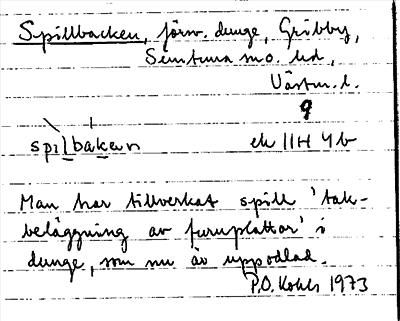 Spillbacken, förv. dunge, Gribby,
Simtuna sn o. hd,
Västm. l.
9
spilbakan ek 11H 4b
Man har tillverkat spill 'tak-
beläggning av furuplattor' i
dunge, som nu är uppodlad.
P.O. Kohls 1973